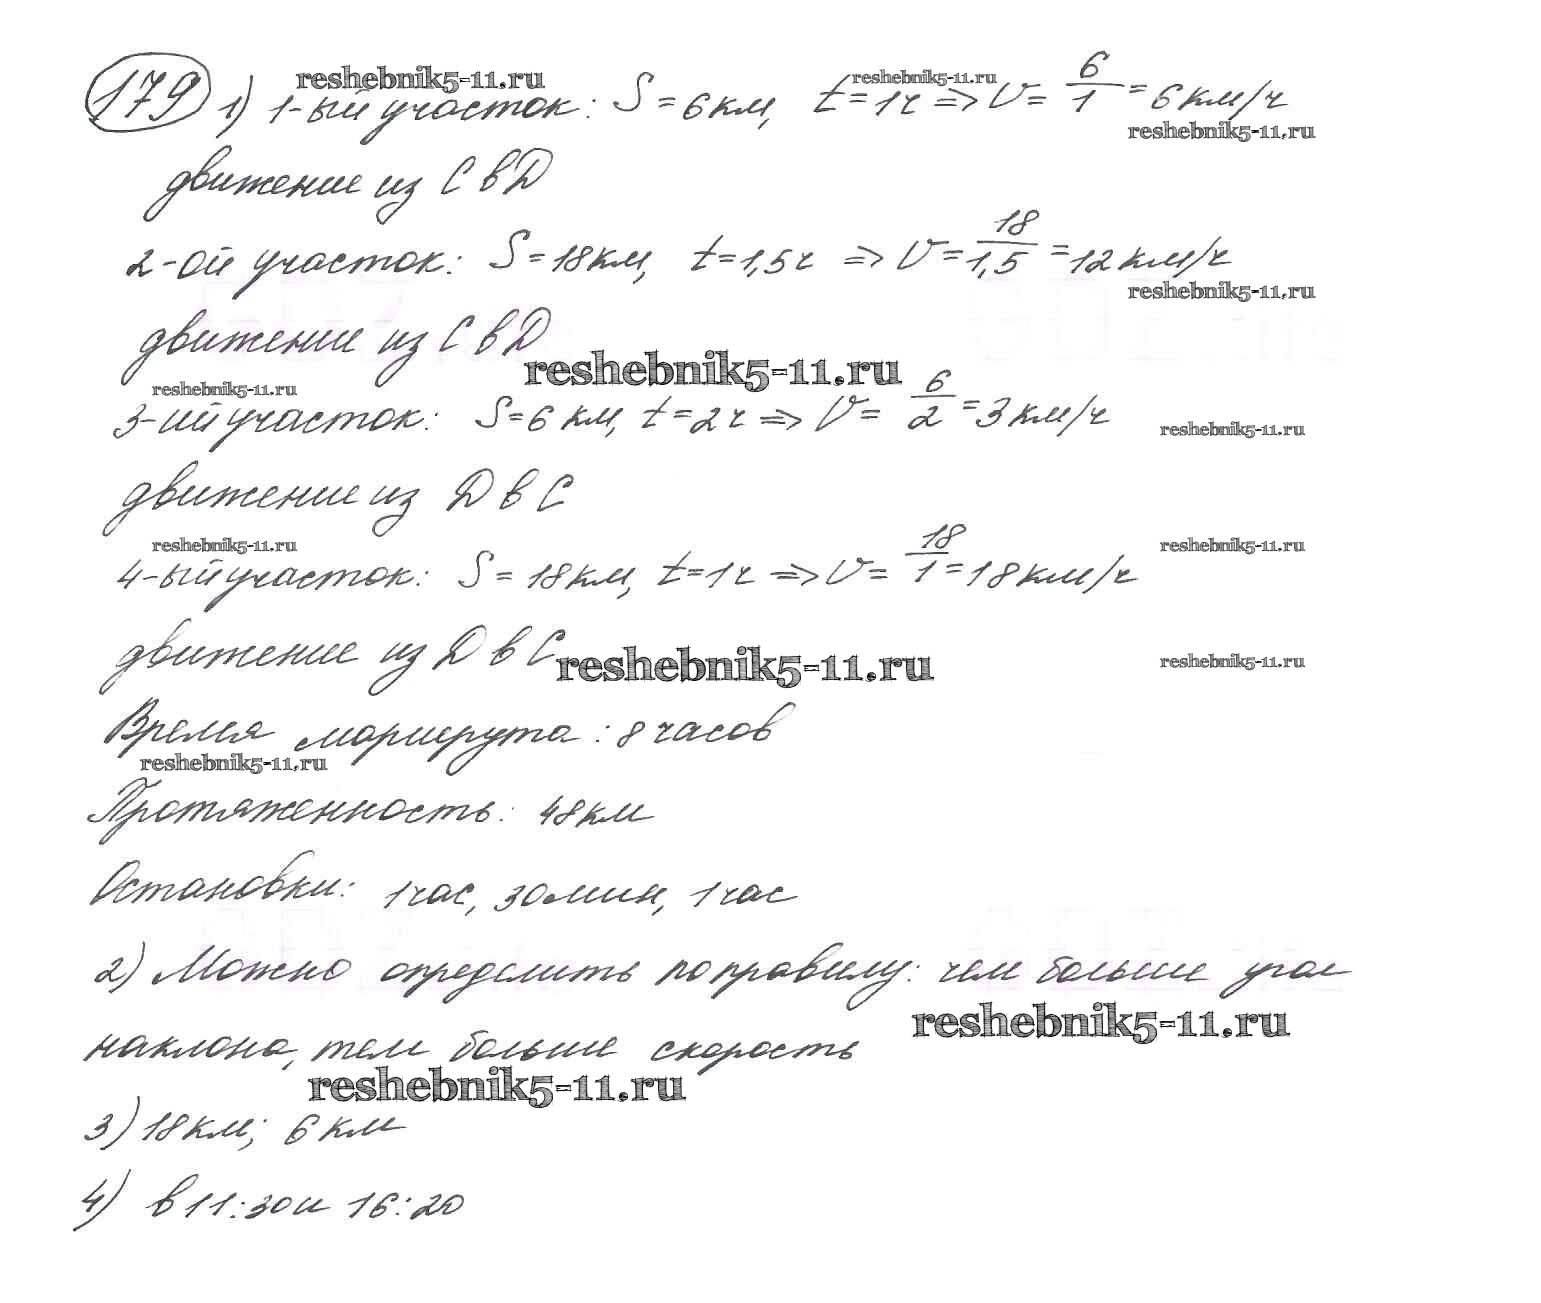 179 1) 1-ый участок: S = 6 км, t = 1 ч => V = 6/1 = 6 км/ч
движение из C в D
2-ой участок: S = 18 км, t = 1,5 ч => V = 18/1,5 = 12 км/ч
движение из C в D
3-ий участок: S = 6 км, t = 2 ч => V = 6/2 = 3 км/ч
движение из D в C
4-ый участок: S = 18 км, t = 1 ч => V = 18/1 = 18 км/ч
движение из D в C
Время маршрута: 8 часов
Протяженность: 48 км
Остановки: 1 час, 30 мин, 1 час
2) Можно определить по правилу: чем больше угол
наклона, тем больше скорость
3) 18 км; 6 км
4) в 11:30 и 16:20
reshebnik5-11.ru
reshebnik5-11.ru
reshebnik5-11.ru
reshebnik5-11.ru
reshebnik5-11.ru
reshebnik5-11.ru
reshebnik5-11.ru
reshebnik5-11.ru
reshebnik5-11.ru
reshebnik5-11.ru
reshebnik5-11.ru
reshebnik5-11.ru
reshebnik5-11.ru
reshebnik5-11.ru